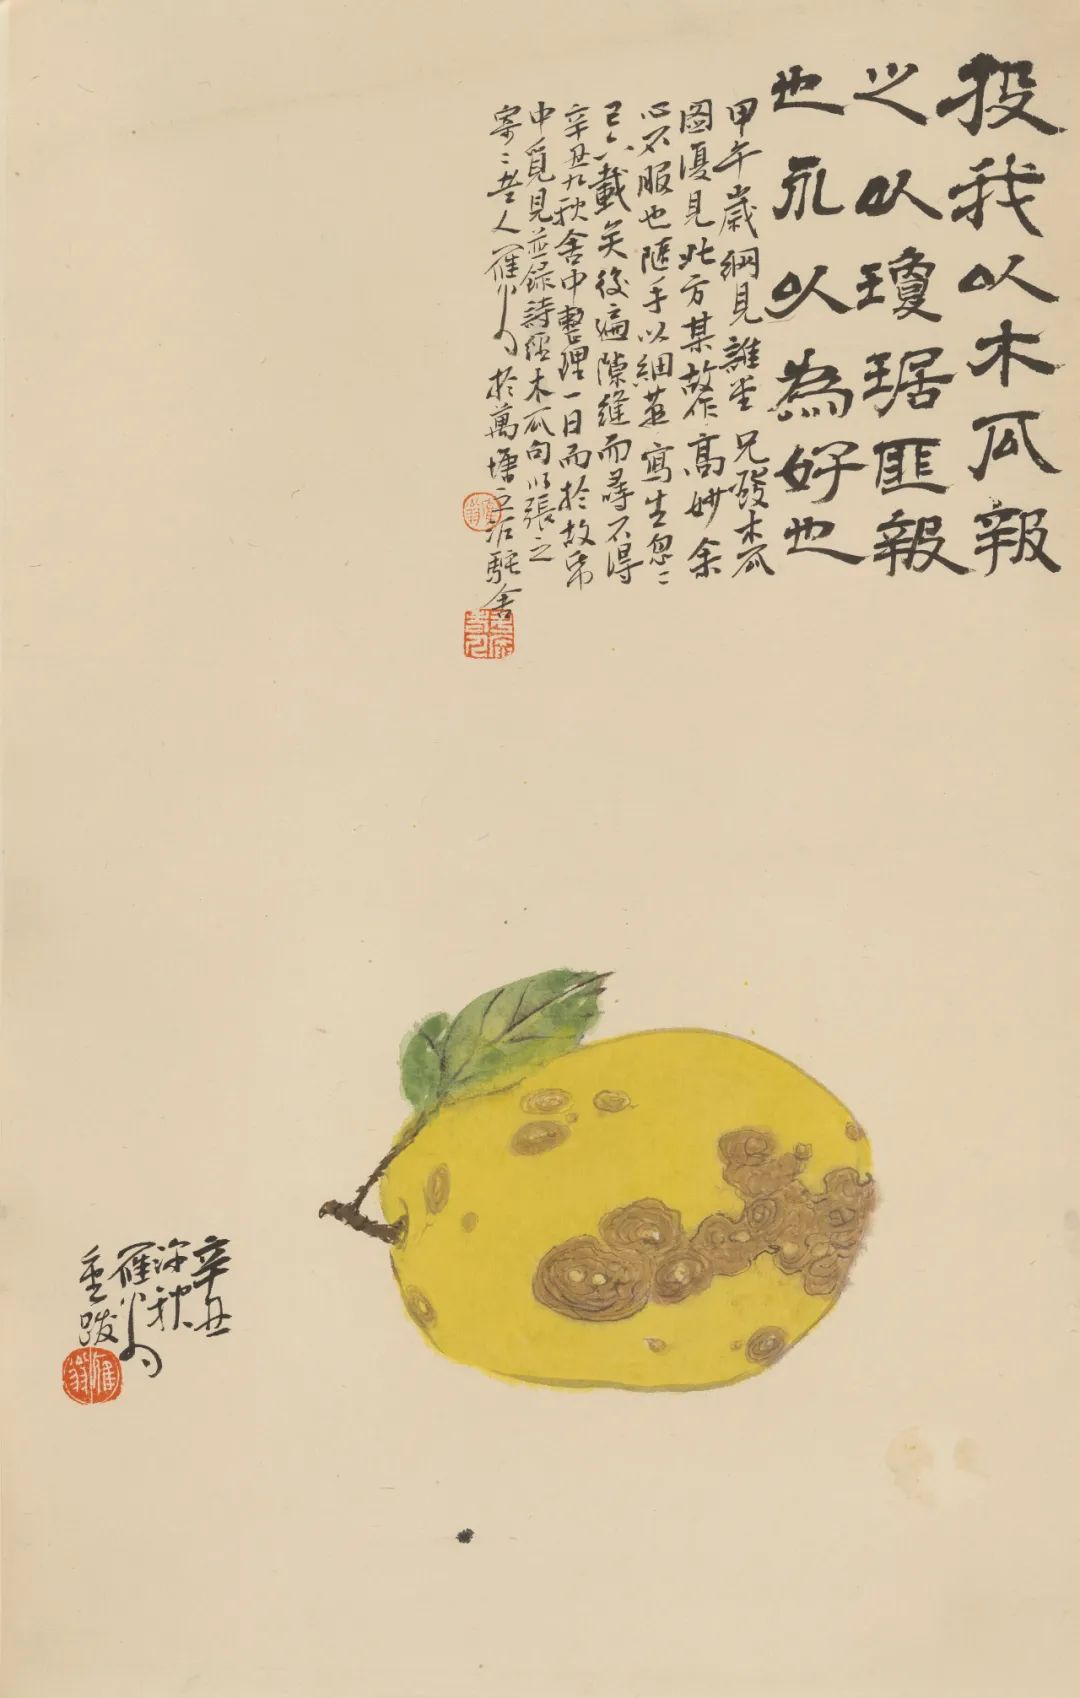 投我以木瓜報
之以瓊琚匪報
也永以為好也
甲午歲網見誰堂兄發木瓜
圖復見北方某故作高妙余
心不服也隨手以細英寫生忽二
已六載矣後遍隙縫而尋不得
辛丑九秋舍中整理一日而於故帋
中覓見並録詩經木瓜句以張之
寄二堂人雁 於萬塘 駝舍
辛丑
深秋
雁
重跋